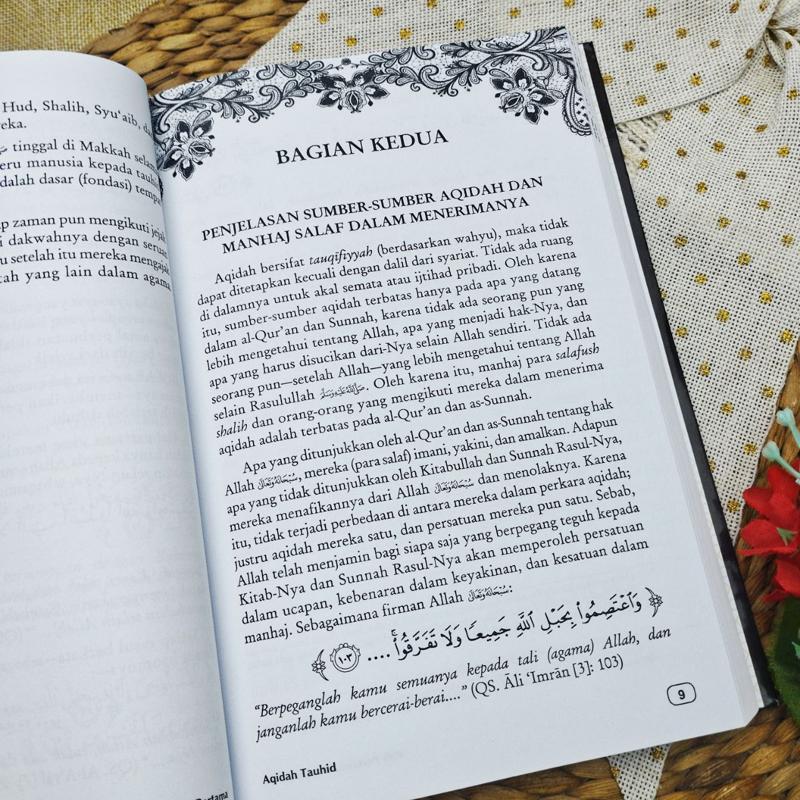 Hud, Shalih, Syu'aib, da
eka.
tinggal di Makkah selam
eru manusia kepada tauhi
dalah dasar (fondasi) tempa
p zaman pun mengikuti jejak
i dakwahnya dengan seruan
u setelah itu mereka mengajak
tah yang lain dalam agama
BAGIAN KEDUA
PENJELASAN SUMBER-SUMBER AQIDAH DAN
MANHAJ SALAF DALAM MENERIMANYA
Aqidah bersifat tauqifiyyah (berdasarkan wahyu), maka tidak
dapat ditetapkan kecuali dengan dalil dari syariat. Tidak ada ruang
di dalamnya untuk akal semata atau ijtihad pribadi. Oleh karena
itu, sumber-sumber aqidah terbatas hanya pada apa yang datang
dalam al-Qur'an dan Sunnah, karena tidak ada seorang pun yang
lebih mengetahui tentang Allah, apa yang menjadi hak-Nya, dan
apa yang harus disucikan dari-Nya selain Allah sendiri. Tidak ada
seorang pun—setelah Allah—yang lebih mengetahui tentang Allah
selain Rasulullah ﷺ. Oleh karena itu, manhaj para salafush
shalih dan orang-orang yang mengikuti mereka dalam menerima
aqidah adalah terbatas pada al-Qur'an dan as-Sunnah.
Apa yang ditunjukkan oleh al-Qur'an dan as-Sunnah tentang hak
Allah سُبْحَانَهُ وَتَعَالَى, mereka (para salaf) imani, yakini, dan amalkan. Adapun
apa yang tidak ditunjukkan oleh Kitabullah dan Sunnah Rasul-Nya,
mereka menafikannya dari Allah سُبْحَانَهُ وَتَعَالَى dan menolaknya. Karena
itu, tidak terjadi perbedaan di antara mereka dalam perkara aqidah;
justru aqidah mereka satu, dan persatuan mereka pun satu. Sebab,
Allah telah menjamin bagi siapa saja yang berpegang teguh kepada
Kitab-Nya dan Sunnah Rasul-Nya akan memperoleh persatuan
dalam ucapan, kebenaran dalam keyakinan, dan kesatuan dalam
manhaj. Sebagaimana firman Allah سُبْحَانَهُ وَتَعَالَى:
﴿ وَٱعْتَصِمُوا۟ بِحَبْلِ ٱللَّهِ جَمِيعًا وَلَا تَفَرَّقُوا۟ۚ .... ١٠٣ ﴾
“Berpeganglah kamu semuanya kepada tali (agama) Allah, dan
janganlah kamu bercerai-berai....” (QS. Āli ‘Imrān [3]: 103)
9
Aqidah Tauhid
Pertama